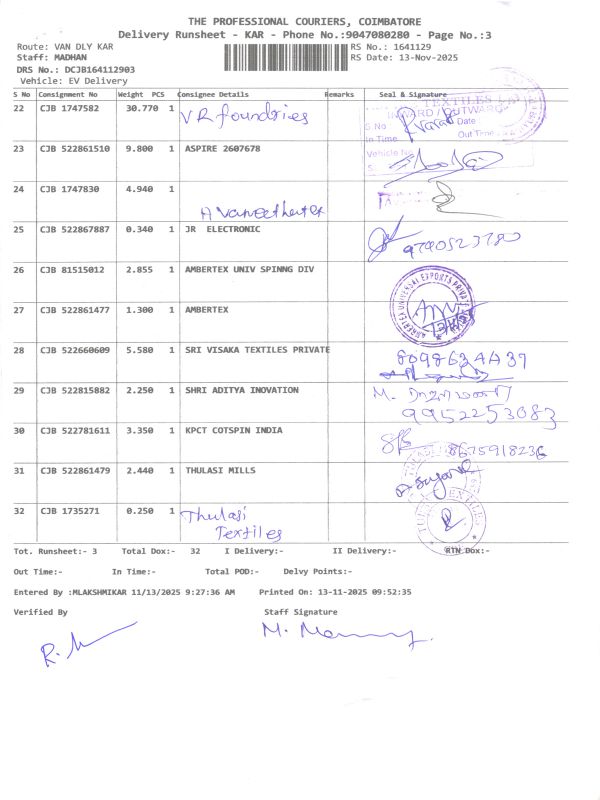 THE PROFESSIONAL COURIERS, COIMBATORE
Delivery Runsheet - KAR - Phone No.:9047080280 - Page No.:3
Route: VAN DLY KAR RS No.: 1641129
Staff: MADHAN RS Date: 13-Nov-2025
DRS No.: DCJB164112903
Vehicle: EV Delivery
S No Consignment No Weight PCS Consignee Details Remarks Seal & Signature
22 CJB 1747582 30.770 1 VR foundries
TEXTILES
INWARD / OUTWARD
S.No Date
In Time Out Time
Vehicle No
23 CJB 522861510 9.800 1 ASPIRE 2607678
24 CJB 1747830 4.940 1
25 CJB 522867887 0.340 1 JR ELECTRONIC 9790523780
26 CJB 81515012 2.855 1 AMBERTEX UNIV SPINNG DIV
AMBERTEX UNIVERSAL EXPORTS PRIVATE
27 CJB 522861477 1.300 1 AMBERTEX
28 CJB 522660609 5.580 1 SRI VISAKA TEXTILES PRIVATE 8098634A39
29 CJB 522815882 2.250 1 SHRI ADITYA INOVATION
9952253083
30 CJB 522781611 3.350 1 KPCT COTSPIN INDIA 8675918236
31 CJB 522861479 2.440 1 THULASI MILLS
32 CJB 1735271 0.250 1 Thulasi
Textiles
Tot. Runsheet:- 3 Total Dox:- 32 I Delivery:- II Delivery:- RTN Dox:-
Out Time:- In Time:- Total POD:- Delvy Points:-
Entered By :MLAKSHMIKAR 11/13/2025 9:27:36 AM Printed On: 13-11-2025 09:52:35
Verified By Staff Signature